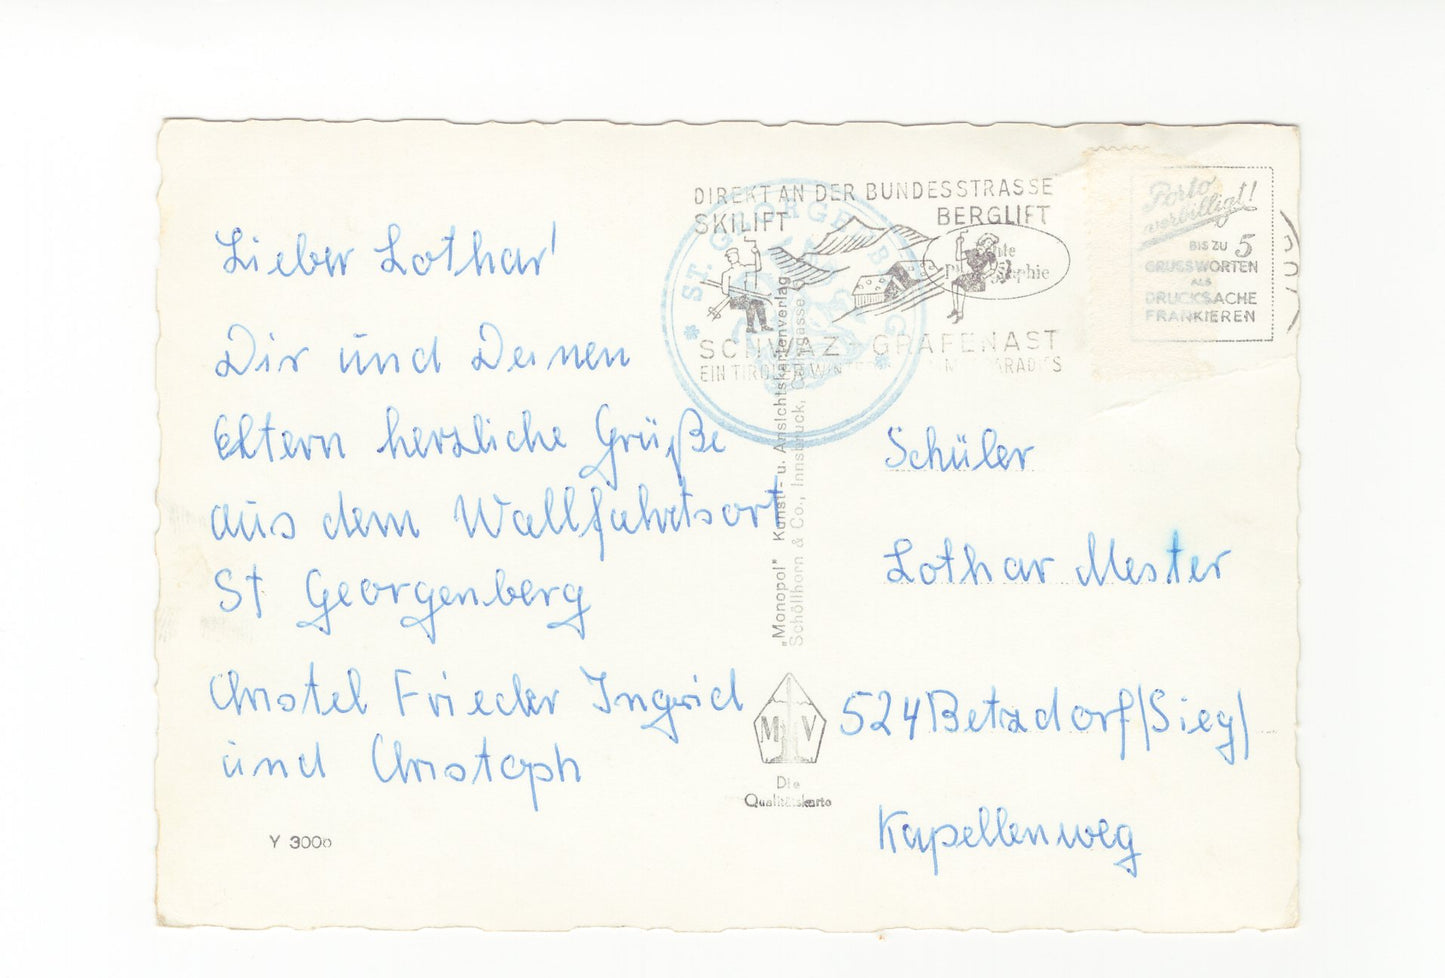 Lieber Lothar!
Dir und Deinen
Eltern herzliche Grüße
aus dem Wallfahrtsort
St Georgenberg
Christel Frieder Ingrid
und Christoph
Y 3000
DIREKT AN DER BUNDESSTRASSE
SKILIFT BERGLIFT
SCHWAZ - GRAFENAST
EIN TIROLER WINTER
* ST. GEORGENBERG *
Porto
verbilligt!
BIS ZU 5
GRUSSWORTEN
ALS
DRUCKSACHE
FRANKIEREN
"Monopol" Kunst- u. Ansichtskartenverlag
Schöllhorn & Co., Innsbruck,
M V
Die
Qualitätskarte
Schüler
Lothar Mester
524 Betzdorf/Sieg/
Kapellenweg